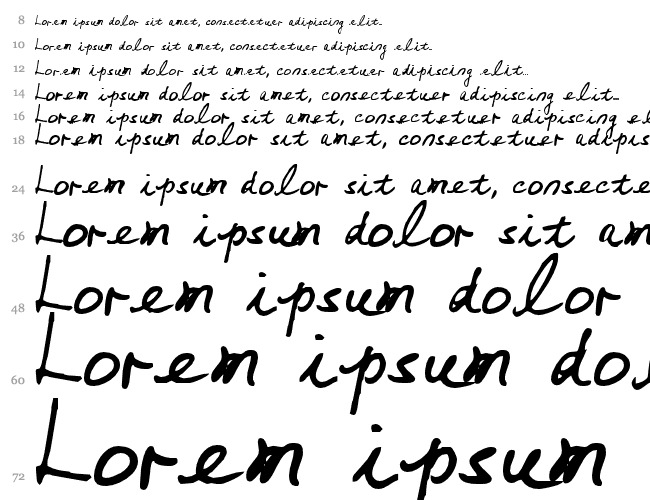 8 Lorem ipsum dolor sit amet, consectetuer adipiscing elit...
10 Lorem ipsum dolor sit amet, consectetuer adipiscing elit...
12 Lorem ipsum dolor sit amet, consectetuer adipiscing elit...
14 Lorem ipsum dolor sit amet, consectetuer adipiscing elit...
16 Lorem ipsum dolor sit amet, consectetuer adipiscing el
18 Lorem ipsum dolor sit amet, consectetuer adipis
24 Lorem ipsum dolor sit amet, consecte
36 Lorem ipsum dolor sit am
48 Lorem ipsum dolor
60 Lorem ipsum dol
72 Lorem ipsum